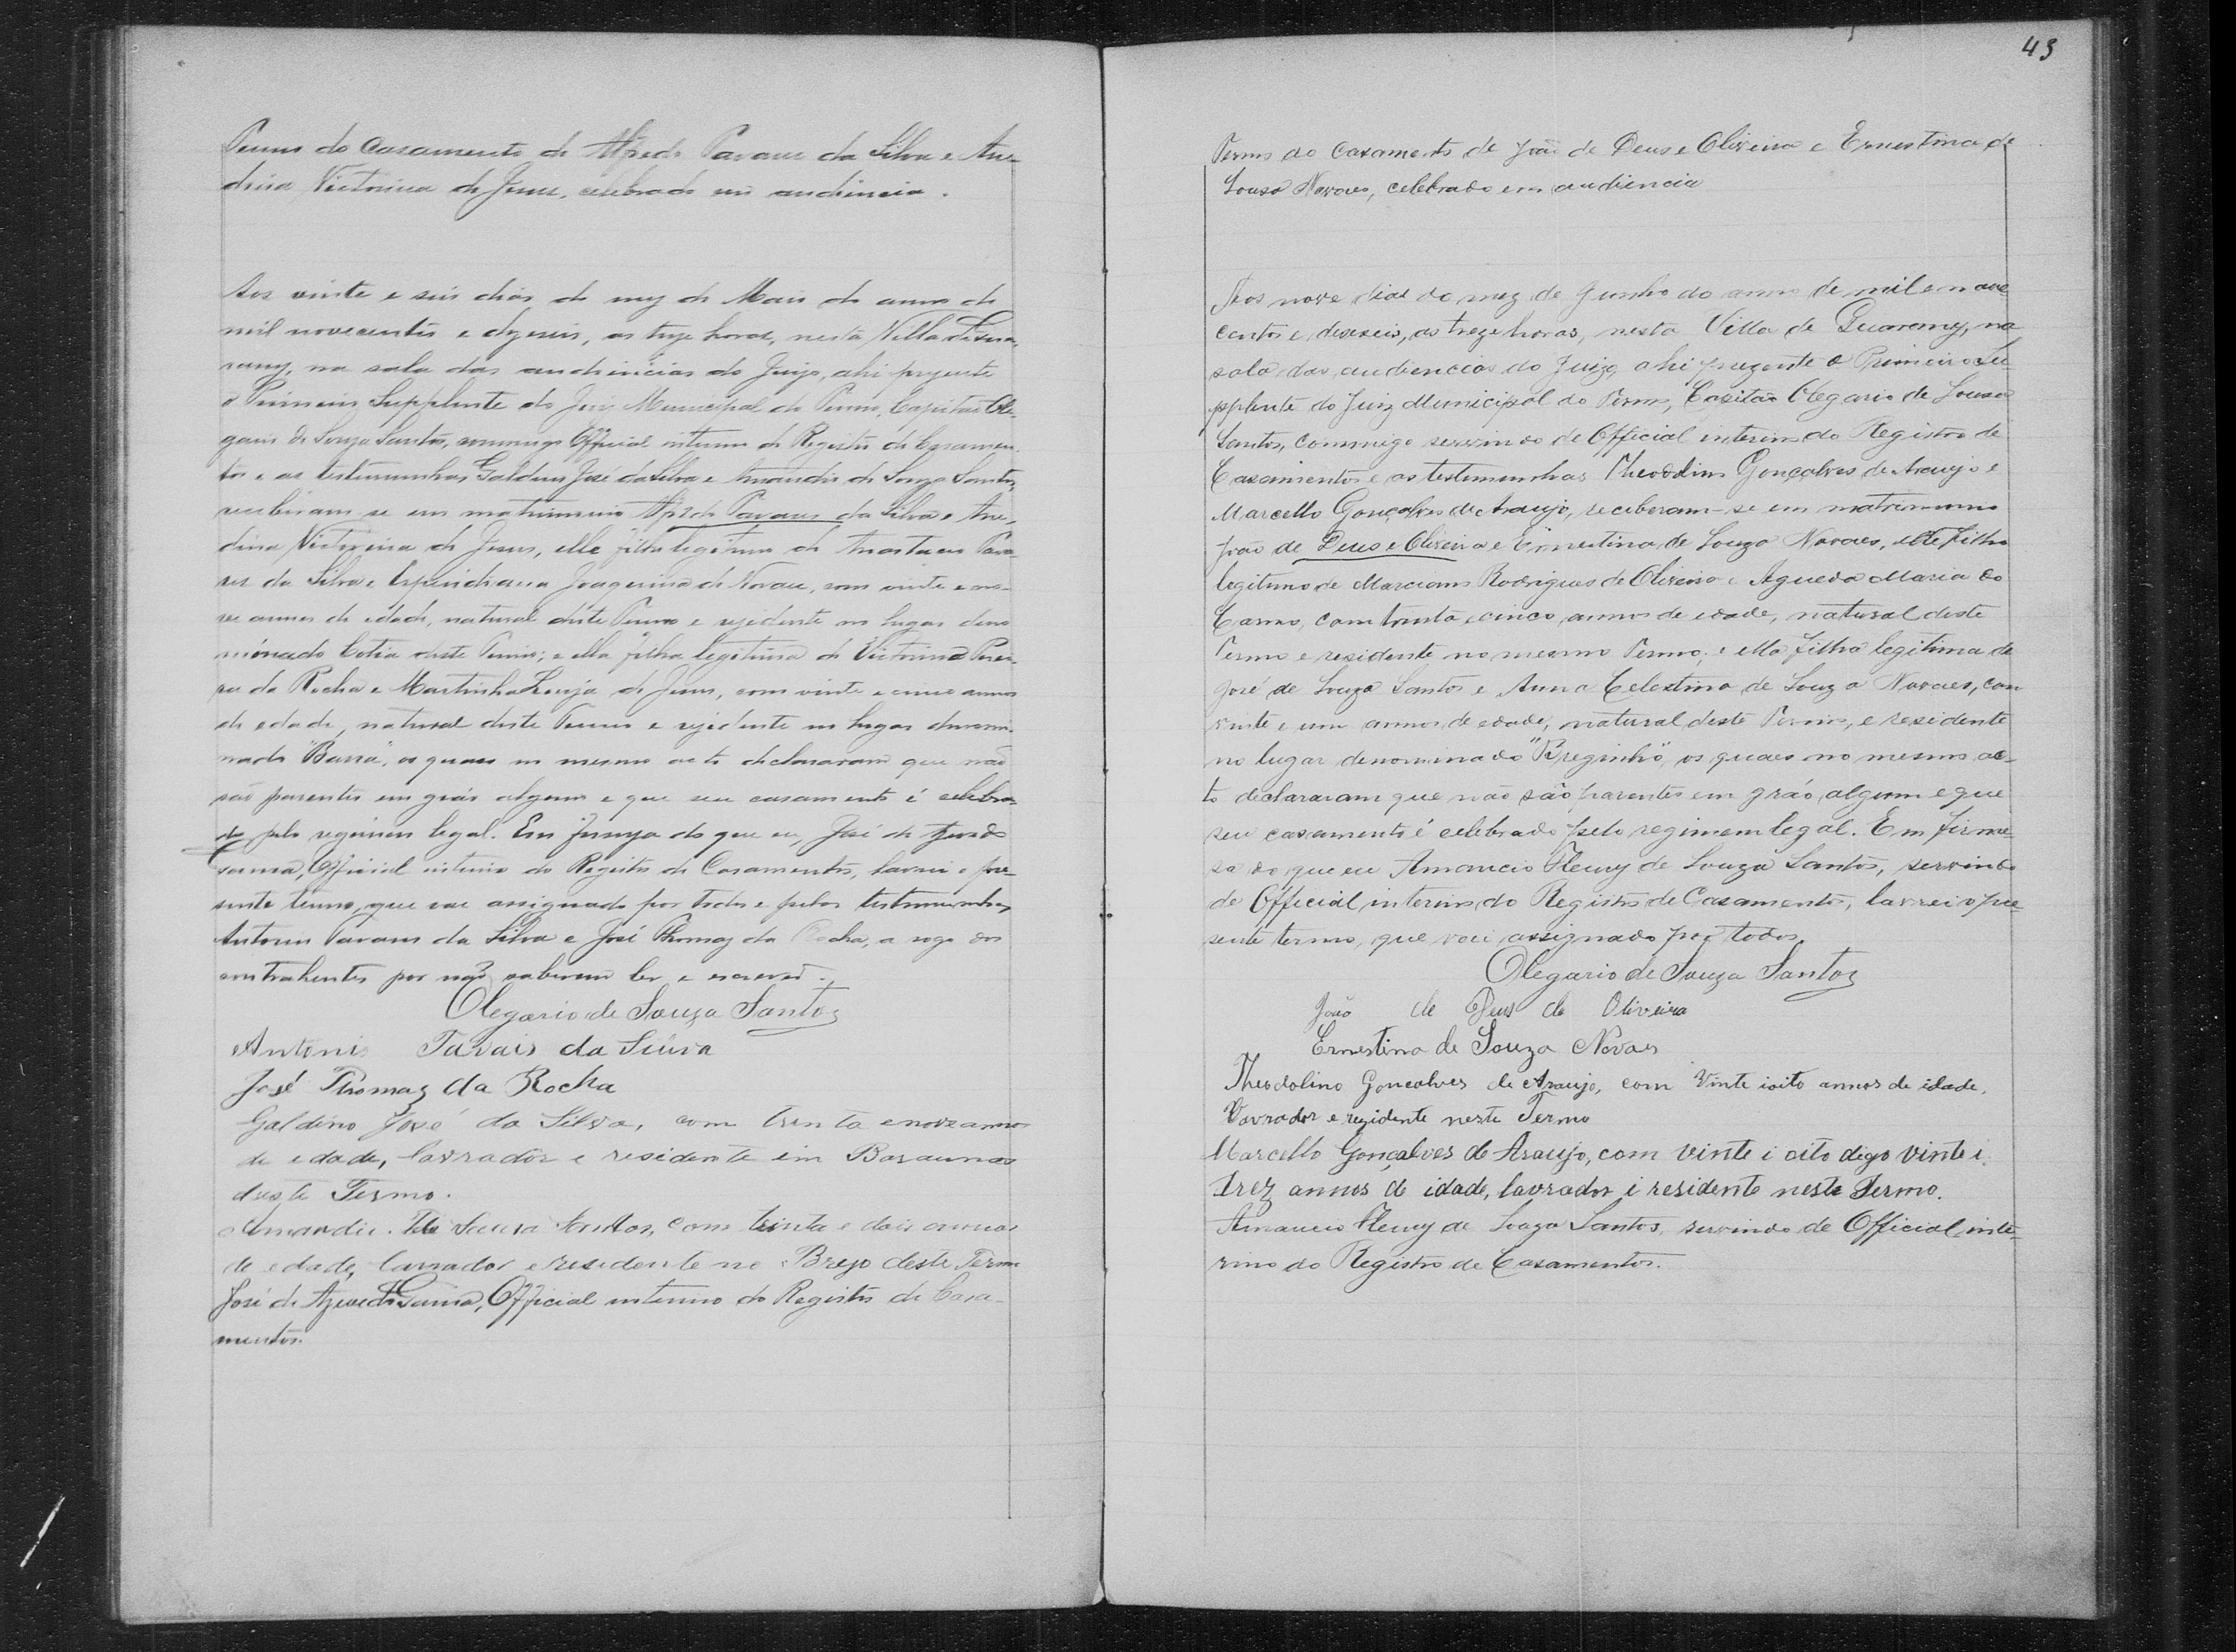 Termo do Casamento de Alfredo Tavares da Silva e Ane-
dina Victorina de Jesus, celebrado em audiencia.
Aos vinte e seis dias do mez de Maio do anno de
mil novecentos e dezeseis, as treze horas, nesta Villa de Gua-
ramy, na sala das audiencias do Juizo, ahi prezente
o Primeiro Supplente do Juiz Municipal do Termo, Capitão Ole-
gario de Souza Santos, commigo Official interino do Registro de Casamen-
tos e as testemunhas Galdino José da Silva e Amandio de Souza Santos,
receberam-se em matrimonio Alfredo Tavares da Silva e Ane-
dina Victorina de Jesus, elle filho legitimo de Anastacio Tava-
res da Silva e Joaquina de Novaes, com vinte e no-
ve annos de edade, natural deste Termo e rezidente no lugar deno
minado Cotia deste Termo; e ella filha legitima de Victorino Perei-
ra da Rocha e Martinha de Jesus, com vinte e cinco annos
de edade, natural deste Termo e rezidente no lugar denomi-
nado "Barra", os quaes no mesmo acto declararam que não
são parentes em gráo algum e que seu casamento é celebra-
do pelo regimen legal. Em firmeza do que eu, José de Azevedo
Gama, Official interino do Registro de Casamentos, lavrei o pre-
sente termo, que vae assignado por todos e pelas testemunhas
Antonio Tavares da Silva e José Thomaz da Rocha, a rogo dos
contrahentes por não saberem ler e escrever.
Olegario de Souza Santos
Antonio Tavais da Silva
José Thomaz da Rocha
Galdino José da Silva, com trinta e nove annos
de edade, lavrador e residente em Baraunas
deste Termo.
Amandio de Souza Santos, com trinta e dois annos
de edade, lavrador e residente no Brejo deste Termo
José de Azevedo Gama, Official interino do Registro de Casa-
mentos.
43
Termo do Casamento de João de Deus e Oliveira e Ernestina de
Souza Novaes, celebrado em audiencia
Aos nove dias do mez de Junho do anno de mil e nove
centos e deseseis, as treze horas, nesta Villa de Guaramy, na
sala das audiencias do Juizo, ahi prezente o Primeiro Su
pplente do Juiz Municipal do Termo, Capitão Olegario de Souza
Santos, commigo servindo de Official interino do Registro de
Casamentos e as testemunhas Theodolino Gonçalves de Araujo e
Marcello Gonçalves de Araujo, receberam-se em matrimonio
João de Deus e Oliveira e Ernestina de Souza Novaes, elle filho
legitimo de Marciano Rodrigues de Oliveira e Agueda Maria do
Carmo, com trinta e cinco annos de edade, natural deste
Termo e residente no mesmo Termo; e ella filha legitima de
José de Souza Santos e Anna Celestina de Souza Novaes, com
vinte e um annos de edade, natural deste Termo, e residente
no lugar denominado "Breginho", os quaes no mesmo ac-
to declararam que não são parentes em gráo algum e que
seu casamento é celebrado pelo regimem legal. Em firme-
sa do que eu Amancio Fleury de Souza Santos, servindo
de Official interino do Registro de Casamentos, lavrei o pre-
sente termo, que vai assignado por todos.
Olegario de Souza Santos
João de Deus de Oliveira
Ernestina de Souza Novaes
Theodolino Goncalves de Araujo, com Vinte ioito annos de idade,
Lavrador e rezidente neste Termo
Marcello Gonçalves de Araujo, com vinte i oito digo vinte i
trez annos de idade, lavrador i residente neste Termo.
Amancio Fleury de Souza Santos, servindo de Official inte-
rino do Registro de Casamentos.